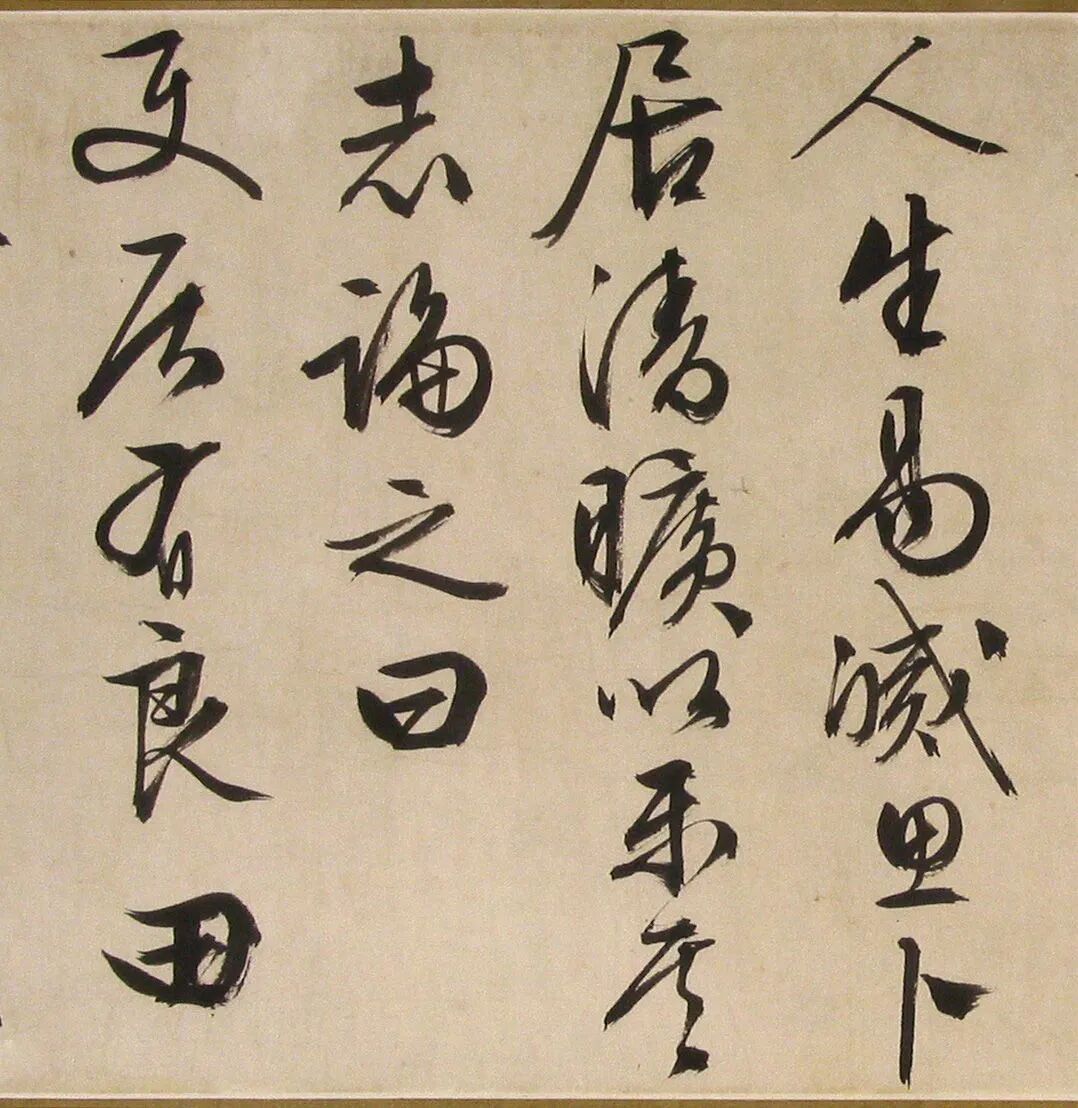 人生易滅思卜
居清曠以樂其
志論之曰
使居有良田